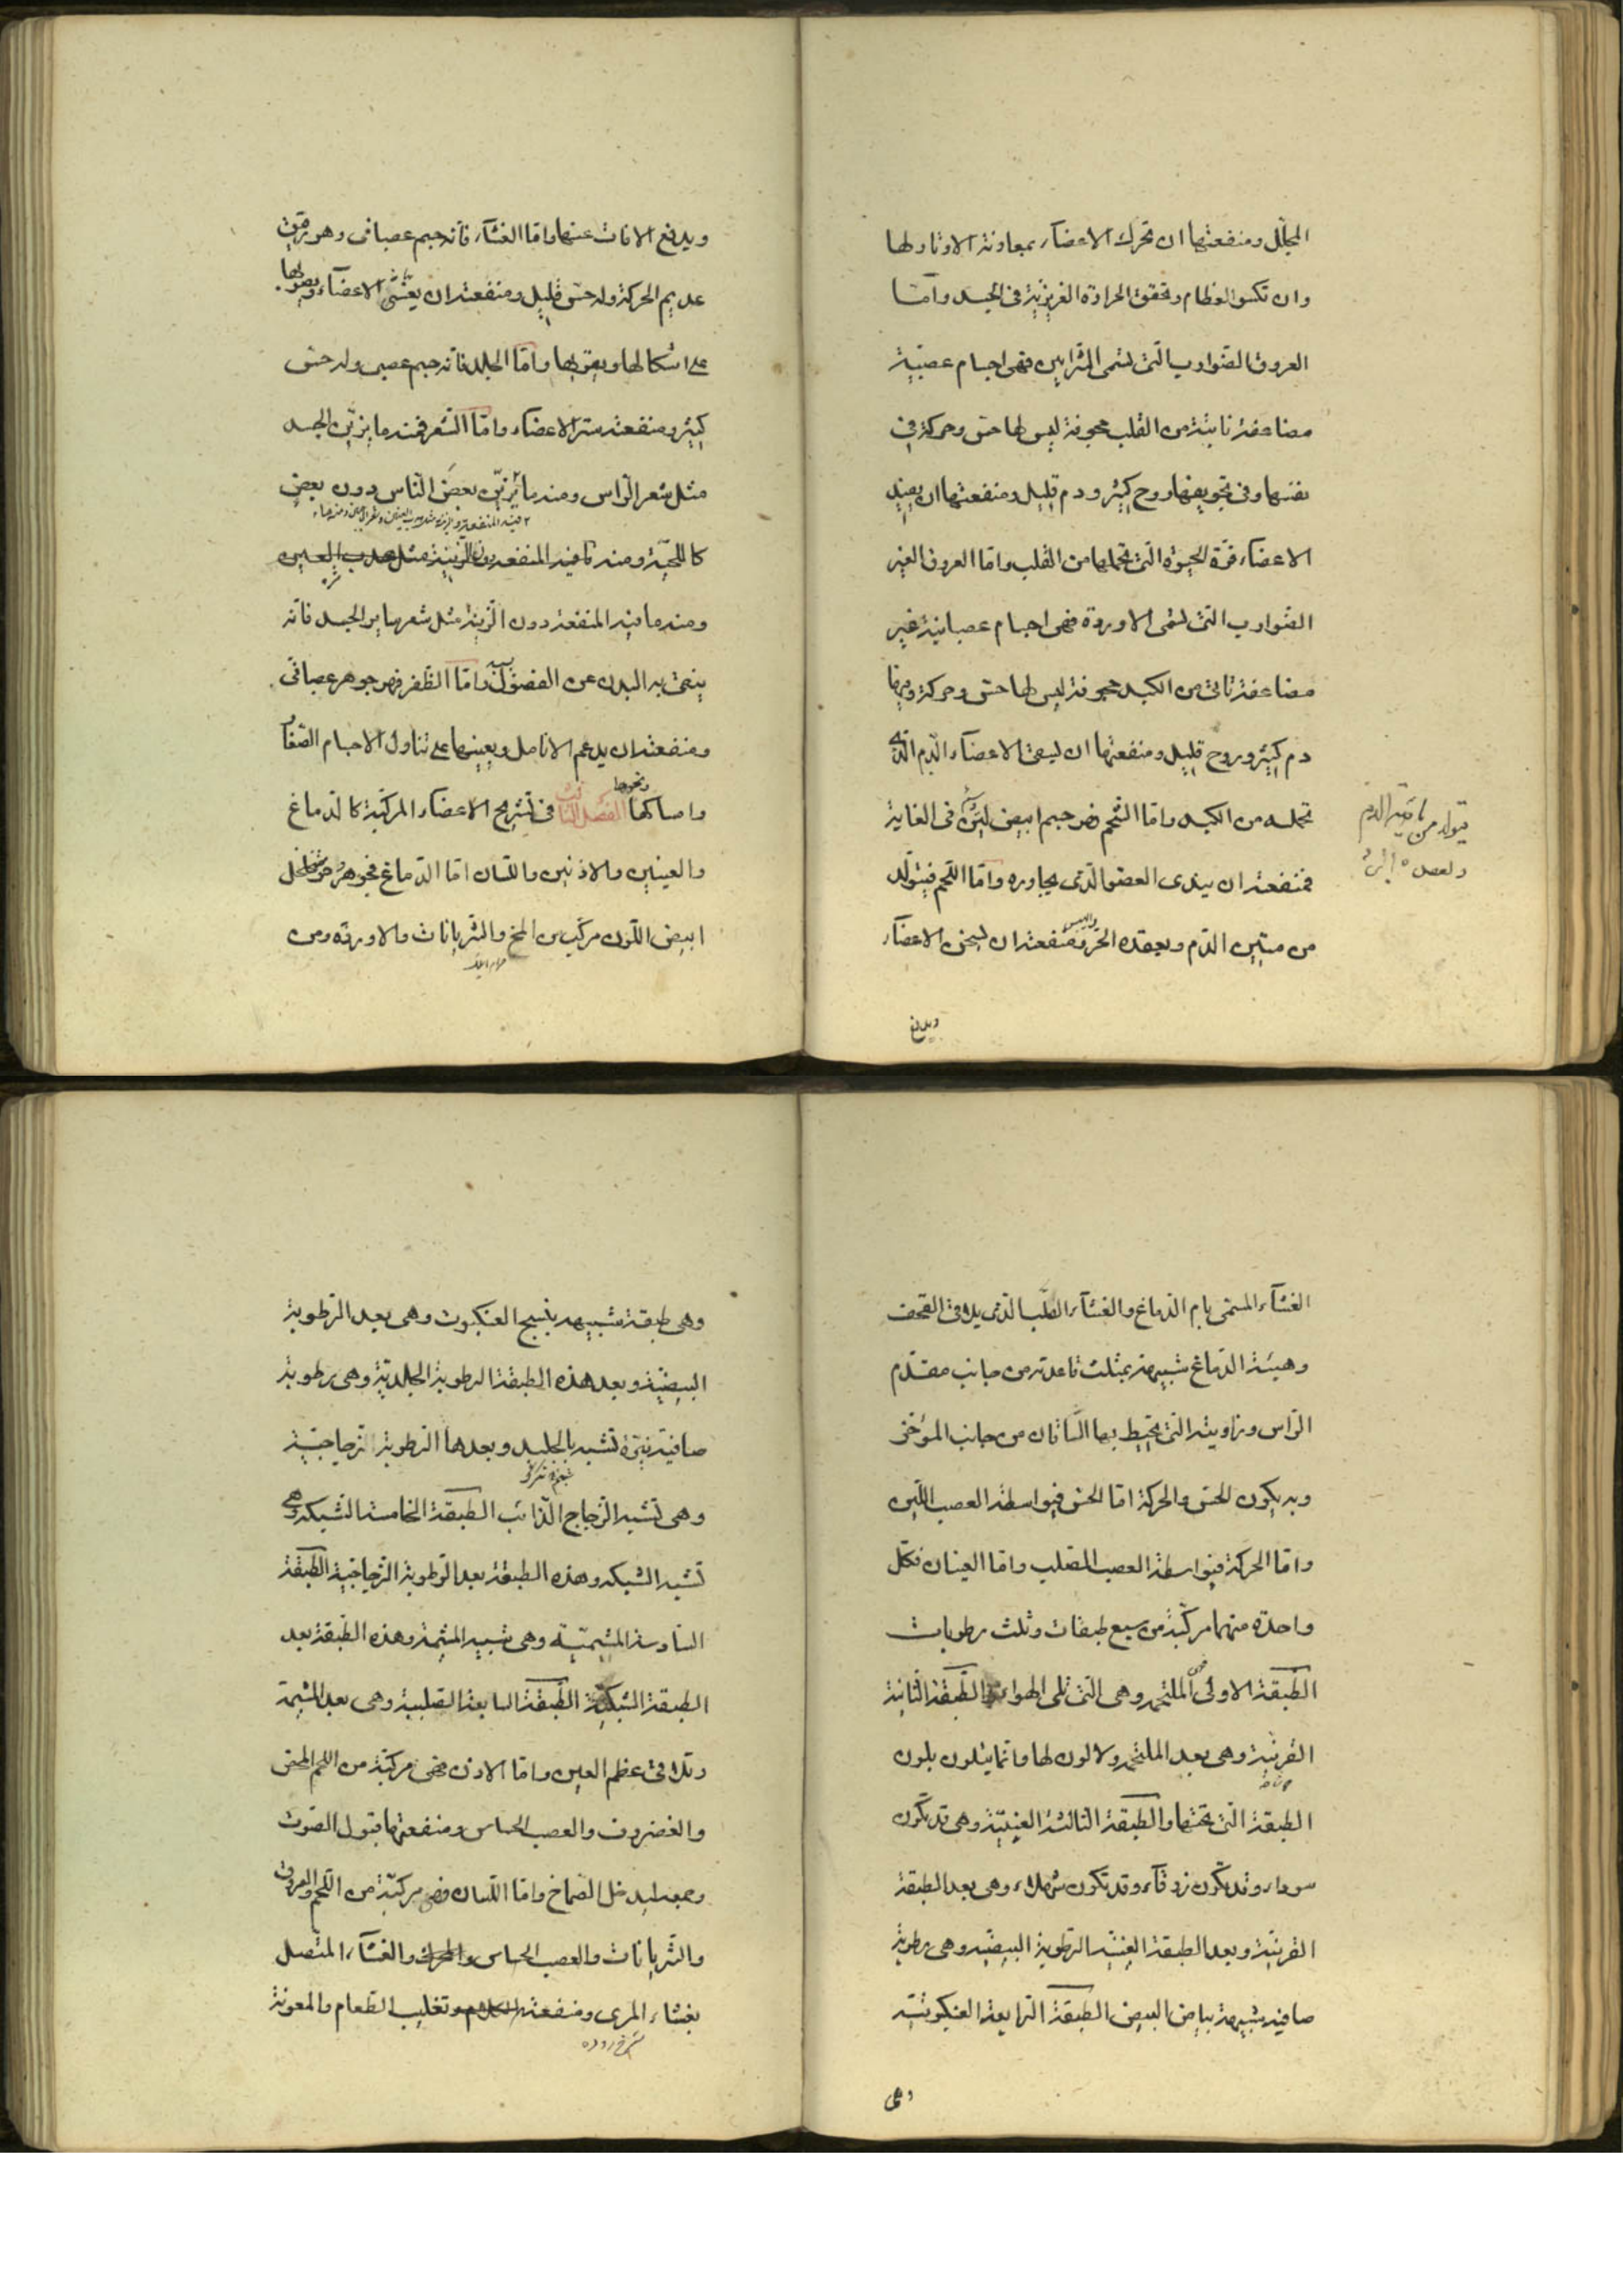 المجلل ومنفعتها ان تحرك الاعضاء بمعاونة الاوتار لها
وان تكسو العظام وتحقق الحرارة الغريزية في الجسد واما
العروق الضوارب التي تسمى الشرايين فهي اجسام عصبية
مضاعفة نابتة من القلب مجوفة ليس لها حس وحركة في
نفسها وفي تجويفها روح كثير ودم قليل ومنفعتها ان يفيد
الاعضاء قوة الحيوة التي تحملها من القلب واما العروق الغير
الضوارب التي تسمى الاوردة فهي اجسام عصبانية غير
مضاعفة تاتي من الكبد مجوفة ليس لها حس وحركة وفيها
دم كثير وروح قليل ومنفعتها ان يسقى الاعضاء الدم الذي
تحمله من الكبد واما الشحم فهو جسم ابيض لين في الغاية
يتولد من مائية الدم
فمنفعته ان يندى العضو الذي يجاوره واما اللحم فيتولد
من متين الدم ويعقده الحر واليبس فمنفعته ان يسخن الاعضاء
ويدفع
ويدفع الافات عنها واما الغشاء فانه جسم عصبانى وهو رقيق
عديم الحركة وله حس قليل ومنفعته ان يغشى الاعضاء ويصونها
على اشكالها ويقويها واما الجلد فانه جسم عصبى وله حس
كثير ومنفعته ستر الاعضاء واما الشعر فمنه ما يزين الجسد
مثل شعر الراس ومنه ما يزين بعض الناس دون بعض
كاللحية ومنه ما فيه المنفعة دون الزينة مثل هدب العين
ومنه ما فيه المنفعة دون الزينة مثل شعر سائر الجسد فانه
ينقى به البدن عن الفضول واما الظفر فهو جوهر عصبانى
ومنفعته ان يدعم الانامل ويعينها على تناول الاجسام الصغار
وامساكها ونحوها الفصل الثالث في تشريح الاعضاء المركبة كالدماغ
والعينين والاذنين واللسان اما الدماغ فجوهر متخلخل
ابيض اللون مركب من المخ والشريانات والاوردة ومن
الغشاء المسمى بام الدماغ والغشاء الصلب الذي يلاقى القحف
وهيئة الدماغ شبيهة بمثلث قاعدته من جانب مقدم
الراس وزاويته التي يحيط بها الساقان من جانب الموخر
وبه يكون الحس والحركة اما الحس فبواسطة العصب اللين
واما الحركة فبواسطة العصب الصلب واما العينان فكل
واحدة منهما مركبة من سبع طبقات وثلث رطوبات
الطبقة الاولى الملتحمة وهي التي تلى الهواء الطبقة الثانية
القرنية وهي بعد الملتحمة ولا لون لها وانما يتلون بلون
الطبقة التي تحتها والطبقة الثالثة العنبية وهي قد تكون
سوداء وقد تكون زرقاء وقد تكون شهلاء وهي بعد الطبقة
القرنية وبعد الطبقة العنبية الرطوبة البيضية وهي رطوبة
صافية شبيهة ببياض البيض الطبقة الرابعة العنكبوتية
وهي
وهي طبقة شبيهة بنسج العنكبوت وهي بعد الرطوبة
البيضية وبعد هذه الطبقة الرطوبة الجلدية وهي رطوبة
صافية نيرة تشبه بالجليد وبعدها الرطوبة الزجاجية
وهي تشبه الزجاج الذائب الطبقة الخامسة الشبكة وهي
تشبه الشبكة وهذه الطبقة بعد الرطوبة الزجاجية الطبقة
السادسة المشيمية وهي تشبه المشيمة وهذه الطبقة بعد
الطبقة الشبكية الطبقة السابعة الصلبية وهي بعد المشيمة
وتلاقى عظم العين واما الاذن فهى مركبة من اللحم المحض
والغضروف والعصب الحساس ومنفعتها قبول الصوت
وجمعه ليدخل الصماخ واما اللسان فهو مركبة من اللحم والعروق
والشريانات والعصب الحساس والمحرك والغشاء المتصل
بغشاء المرى ومنفعته الكلام وتقليب الطعام والمعونة
سرخ روده